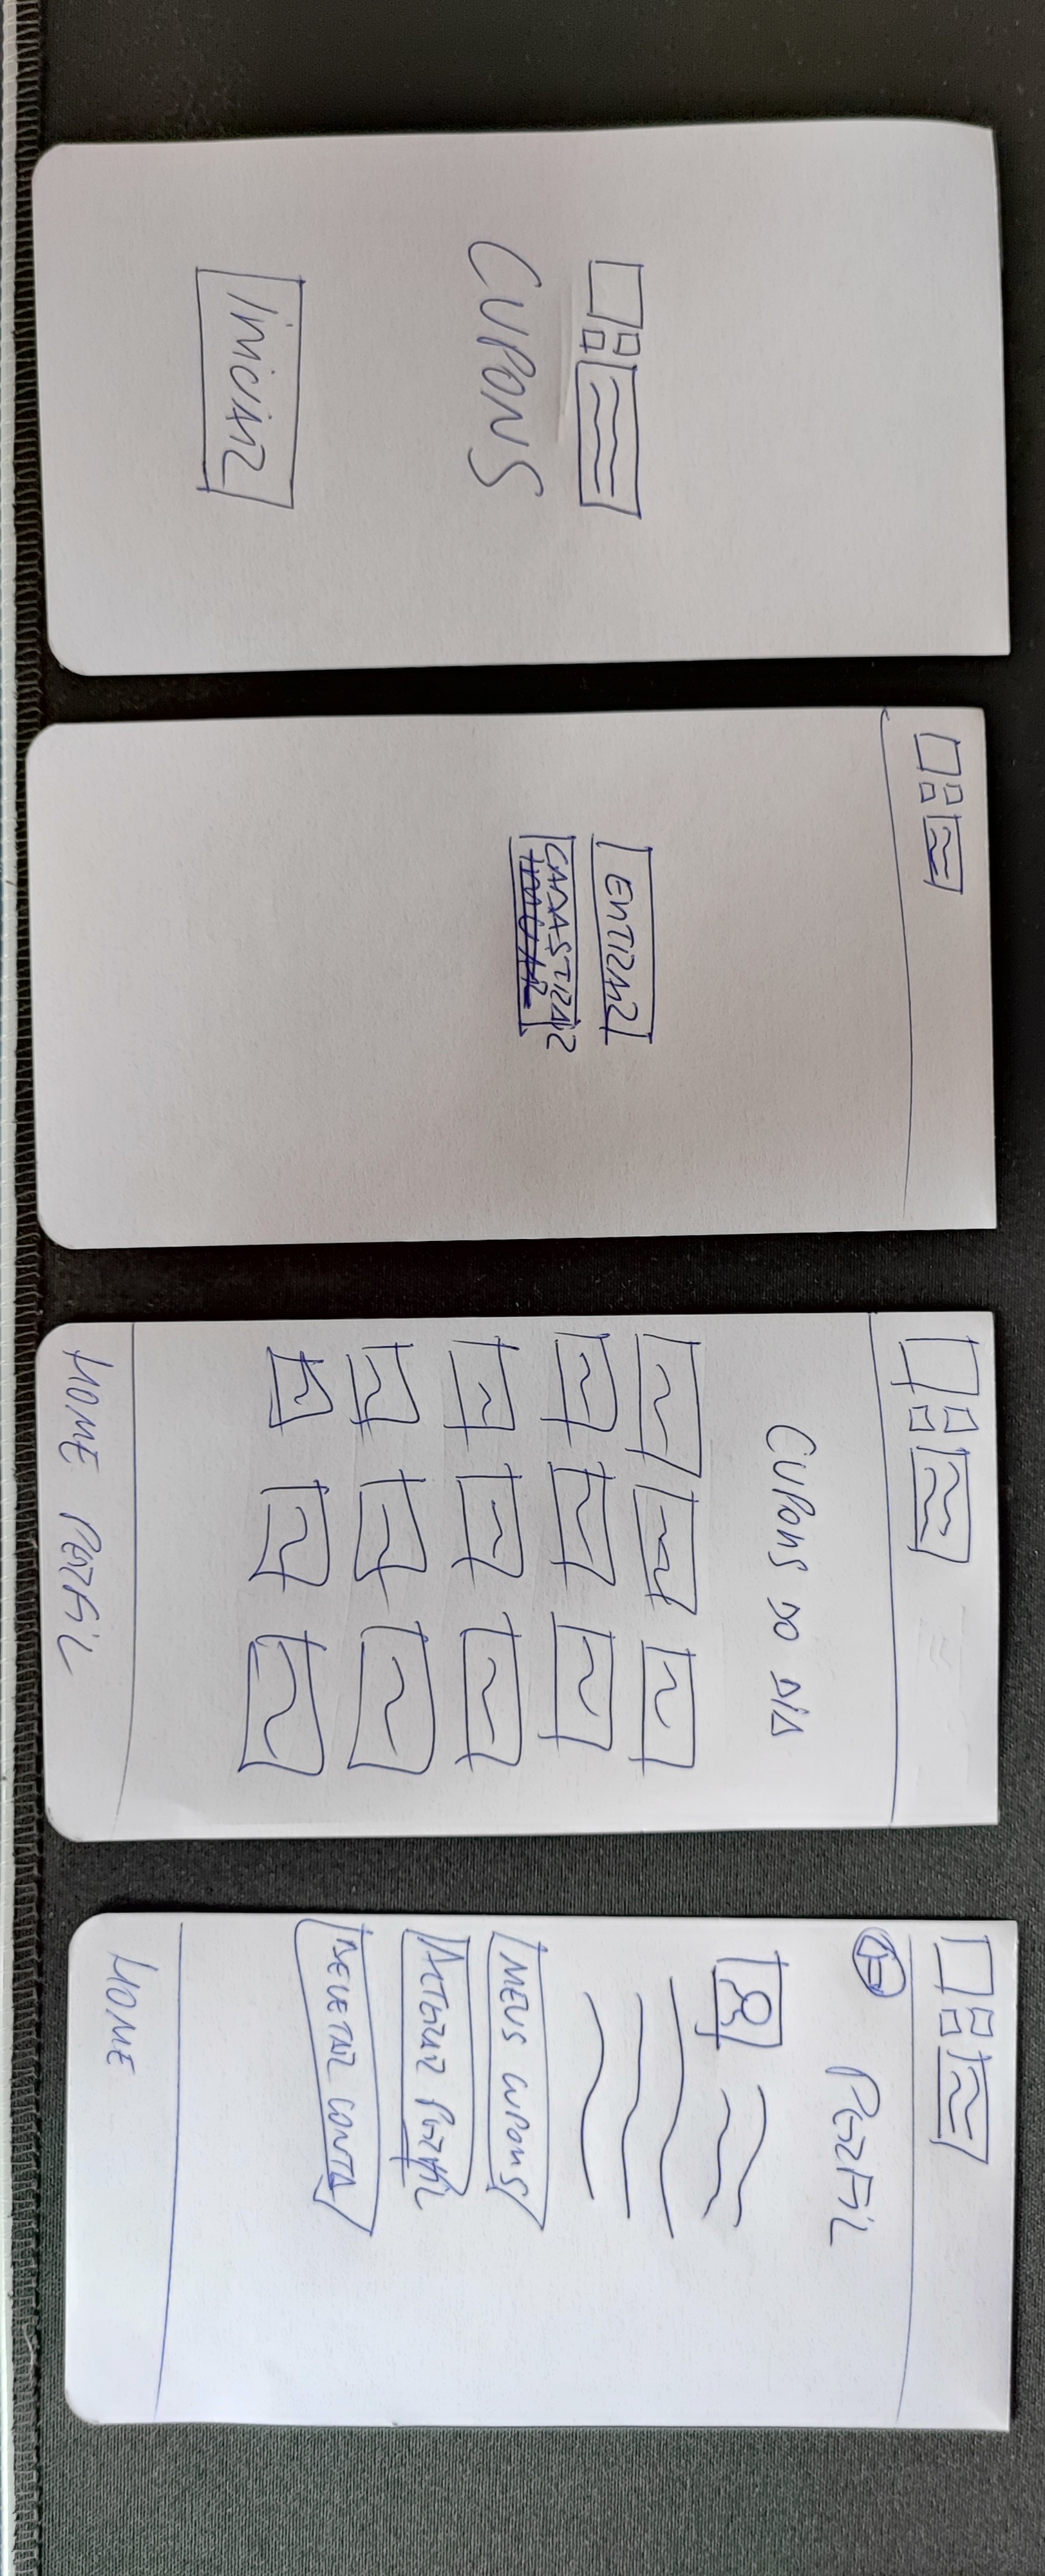 CUPONS
INICIAR
ENTRAR
CADASTRAR
CUPONS DO DIA
HOME PERFIL
PERFIL
MEUS CUPONS
ALTERAR PERFIL
DELETAR CONTA
HOME